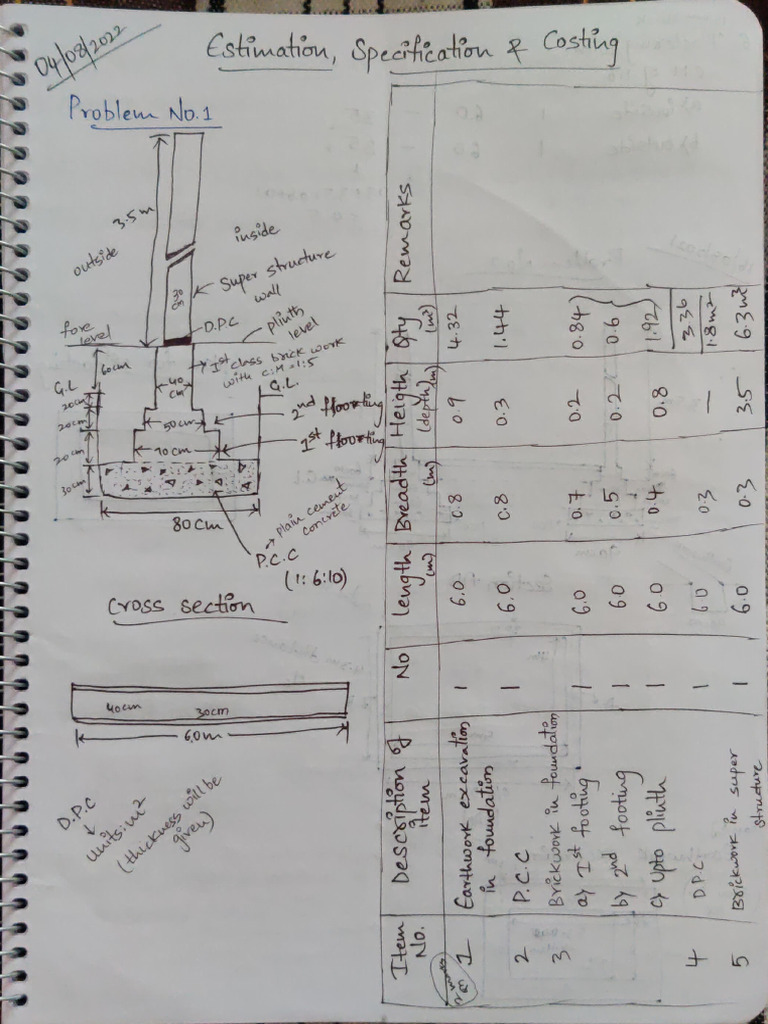 04/08/2022
Estimation, Specification & Costing
Problem No.1
3.5m
outside
inside
30
cm
Super structure
wall
D.P.C
plinth
level
fore
level
60cm
1st class brick work
with C:M = 1:5
G.L
G.L.
40
cm
20cm
20cm
50cm
2nd floorting
20cm
70cm
1st floorting
30cm
80cm
plain cement
concrete
P.C.C
(1:6:10)
Cross section
40cm 30cm
6.0m
D.P.C
Units: m2
(thickness will be
given)
Item No. Description of item No length (m) Breadth (m) Heigth (depth)(m) Qty (m3) Remarks
1 Earthwork excavation in foundation 1 6.0 0.8 0.9 4.32
2 P.C.C 1 6.0 0.8 0.3 1.44
3 Brickwork in foundation
a) 1st footing 1 6.0 0.7 0.2 0.84
b) 2nd footing 1 6.0 0.5 0.2 0.6
c) Upto plinth 1 6.0 0.4 0.8 1.92
3.36
4 D.P.C 1 6.0 0.3 — 1.8m2
5 Brickwork in super structure 1 6.0 0.3 3.5 6.3m3